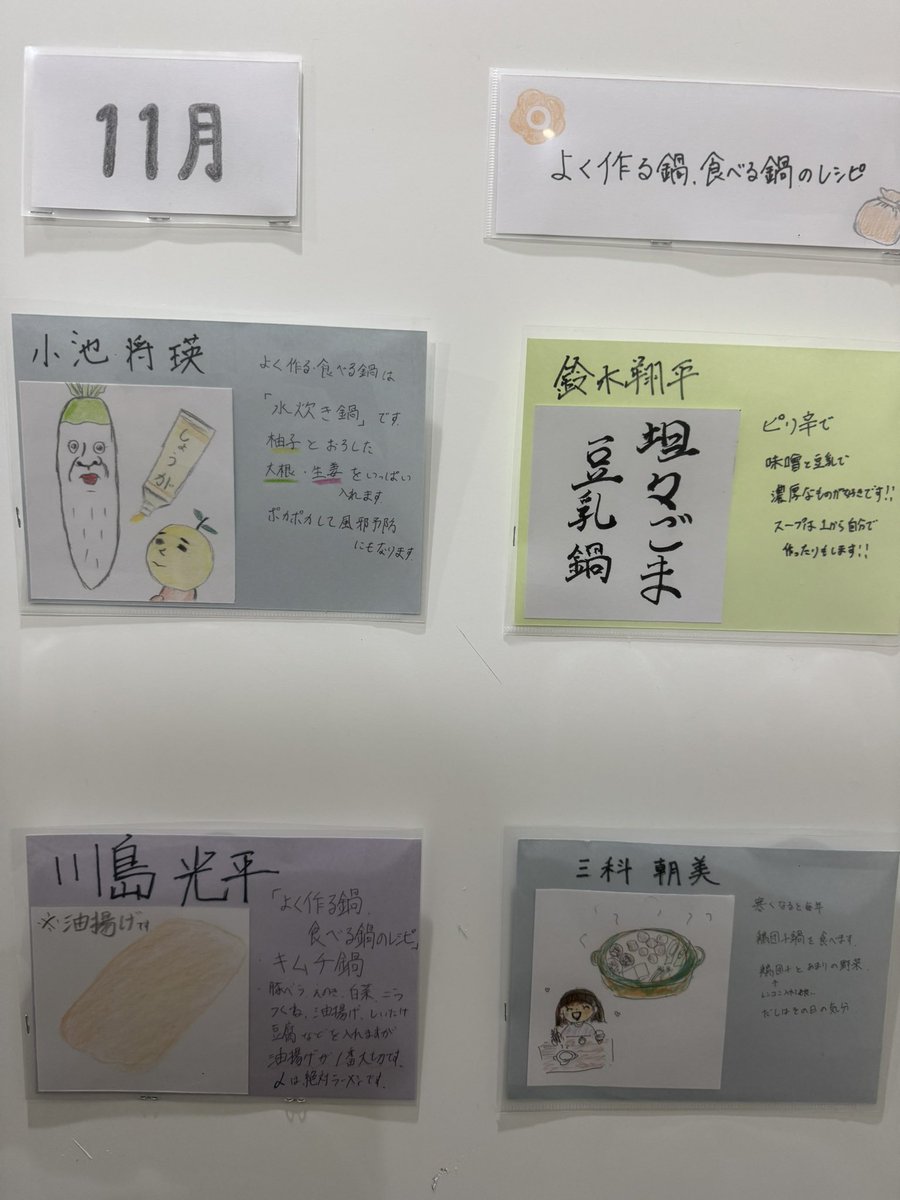 11月
よく作る鍋、食べる鍋のレシピ
小池 将瑛
しょうが
よく作る・食べる鍋は
「水炊き鍋」です
柚子とおろした
大根・生姜をいっぱい
入れます
ポカポカして風邪予防
にもなります。
鈴木翔平
坦々ごま
豆乳鍋
ピリ辛で
味噌と豆乳で
濃厚なものが好きです!!
スープは1から自分で
作ったりもします!!
川島 光平
※油揚げです
「よく作る鍋、
食べる鍋のレシピ」
・キムチ鍋
・豚バラ、えのき、白菜、ニラ
つくね、油揚げ、しいたけ
豆腐などを入れますが
油揚げが1番大切です。
〆は絶対ラーメンです。
三科 朝美
寒くなると毎年
鶏団子鍋を食べます。
鶏団子とあまりの野菜。
だしはその日の気分